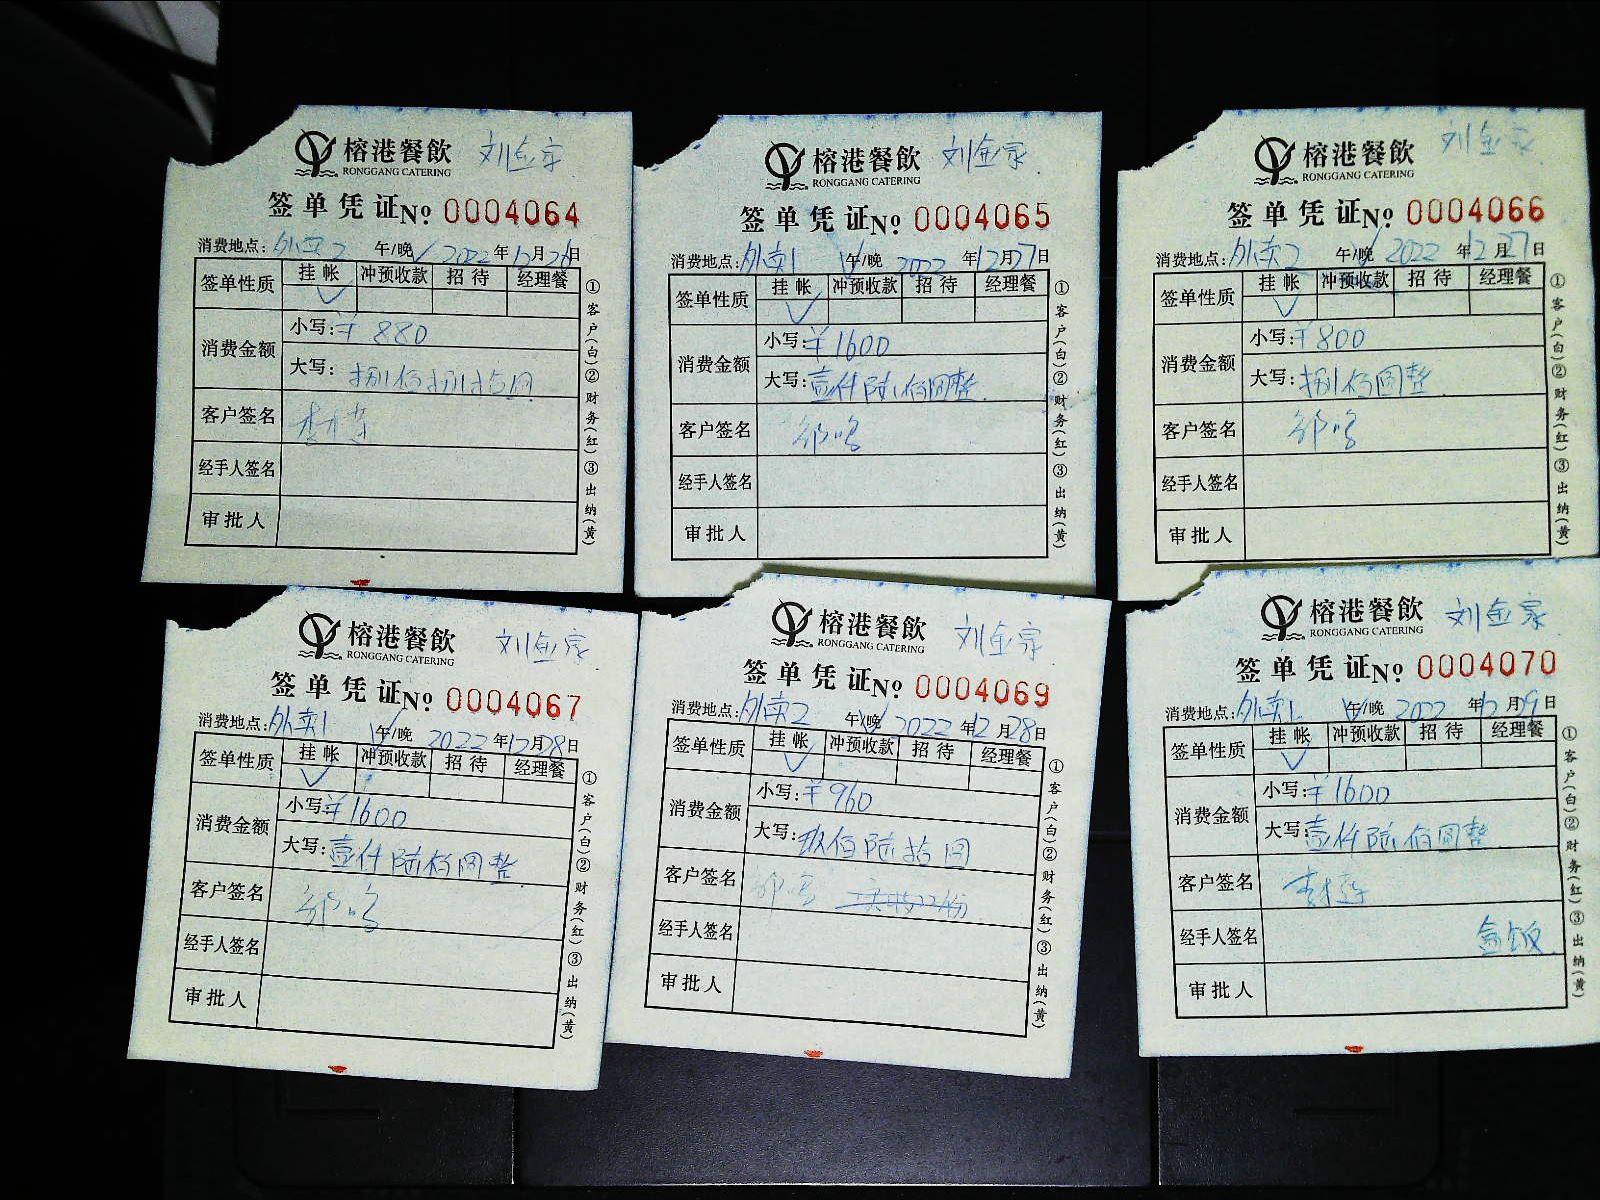 榕港餐飲 刘金家
RONGGANG CATERING
签单凭证 № 0004064
消费地点:外卖2 午/晚 2022年12月26日
签单性质 挂帐 冲预收款 招待 经理餐
✓
消费金额 小写:¥880
大写:捌佰捌拾圆
客户签名
经手人签名
审批人
①客户(白)②财务(红)③出纳(黄)
榕港餐飲 刘金家
RONGGANG CATERING
签单凭证 № 0004065
消费地点:外卖1 午/晚 2022年12月27日
签单性质 挂帐 冲预收款 招待 经理餐
✓
消费金额 小写:¥1600
大写:壹仟陆佰圆整
客户签名 邹鸣
经手人签名
审批人
①客户(白)②财务(红)③出纳(黄)
榕港餐飲 刘金家
RONGGANG CATERING
签单凭证 № 0004066
消费地点:外卖2 午/晚 2022年12月27日
签单性质 挂帐 冲预收款 招待 经理餐
✓
消费金额 小写:¥800
大写:捌佰圆整
客户签名 邹鸣
经手人签名
审批人
①客户(白)②财务(红)③出纳(黄)
榕港餐飲 刘金家
RONGGANG CATERING
签单凭证 № 0004067
消费地点:外卖1 午/晚 2022年12月28日
签单性质 挂帐 冲预收款 招待 经理餐
✓
消费金额 小写:¥1600
大写:壹仟陆佰圆整
客户签名 邹鸣
经手人签名
审批人
①客户(白)②财务(红)③出纳(黄)
榕港餐飲 刘金家
RONGGANG CATERING
签单凭证 № 0004069
消费地点:外卖2 午/晚 2022年12月28日
签单性质 挂帐 冲预收款 招待 经理餐
✓
消费金额 小写:¥960
大写:玖佰陆拾圆
客户签名 邹鸣
经手人签名
审批人
①客户(白)②财务(红)③出纳(黄)
榕港餐飲 刘金家
RONGGANG CATERING
签单凭证 № 0004070
消费地点:外卖1 午/晚 2022年12月29日
签单性质 挂帐 冲预收款 招待 经理餐
✓
消费金额 小写:¥1600
大写:壹仟陆佰圆整
客户签名
经手人签名 盒饭
审批人
①客户(白)②财务(红)③出纳(黄)